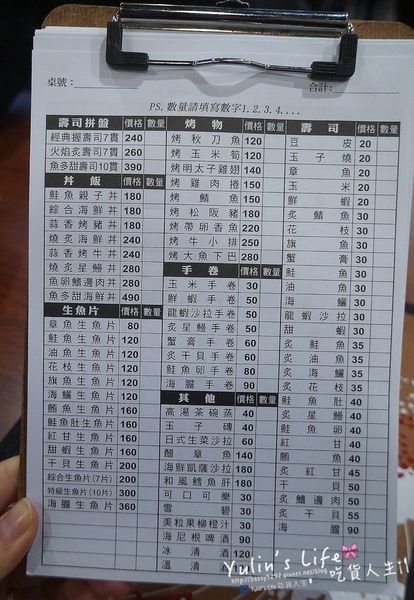 桌號：
合計：
PS. 數量請填寫數字1.2.3.4....
壽司拼盤 價格 數量
經典握壽司7貫 240
火焰炙壽司7貫 260
魚多甜壽司10貫 390
丼飯 價格 數量
鮭魚親子丼 180
綜合海鮮丼 180
蒜香烤豬丼 180
燒炙海鮮丼 240
蒜香烤牛丼 240
燒炙星鰻丼 280
魚卵鰭邊肉丼 280
魚多甜海鮮丼 490
生魚片 價格 數量
章魚生魚片 80
鮭魚生魚片 120
油魚生魚片 120
花枝生魚片 120
旗魚生魚片 120
海鱺生魚片 120
鮪魚生魚片 160
鮭魚肚生魚片 160
紅甘生魚片 160
甜蝦生魚片 160
干貝生魚片 200
綜合生魚片(7片) 200
特級生魚片(10片) 300
海膽生魚片 360
烤物 價格 數量
烤秋刀魚 120
烤玉米筍 120
烤明太子雞翅 140
烤雞肉捲 150
烤鯖魚 150
烤松阪豬 180
烤帶卵香魚 220
烤牛小排 250
烤大魚下巴 280
手卷 價格 數量
玉米手卷 30
鮮蝦手卷 50
龍蝦沙拉手卷 50
炙星鰻手卷 50
蟹膏手卷 60
炙干貝手卷 60
鮭魚卵手卷 80
海膽手卷 90
其他 價格 數量
高湯茶碗蒸 40
玉子磚 40
日式生菜沙拉 60
醋章魚 140
海鮮凱薩沙拉 180
和風鱈魚肝 180
可口可樂 30
雪碧 30
美粒果柳橙汁 30
海尼根啤酒 90
冰清酒 120
溫清酒
壽司 價格 數量
豆皮 20
玉子燒 20
章魚 20
玉米 20
鮮蝦 20
炙鯖魚 30
花枝 30
旗魚 30
蟹膏 30
鮭魚 30
油魚 30
海鱺 30
龍蝦沙拉 30
甜蝦 30
炙鮭魚 35
炙油魚 35
炙海鱺 35
炙花枝 35
鮭魚肚 40
炙星鰻 40
鮭魚卵 40
紅甘 40
鮪魚 40
炙紅甘 45
干貝 50
炙鰭邊肉 50
炙干貝 55
海膽 90
Yulin's Life
吃貨人生!!